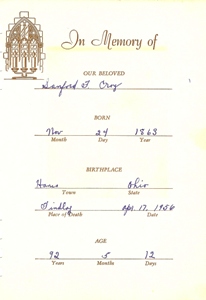 In Memory of
OUR BELOVED
Sanford F. Croy
BORN
Nov 24 1863
Month Day Year
BIRTHPLACE
Ohio
Town State
Findlay Apr. 17, 1956
Place of Death Date
AGE
92 5 12
Years Months Days